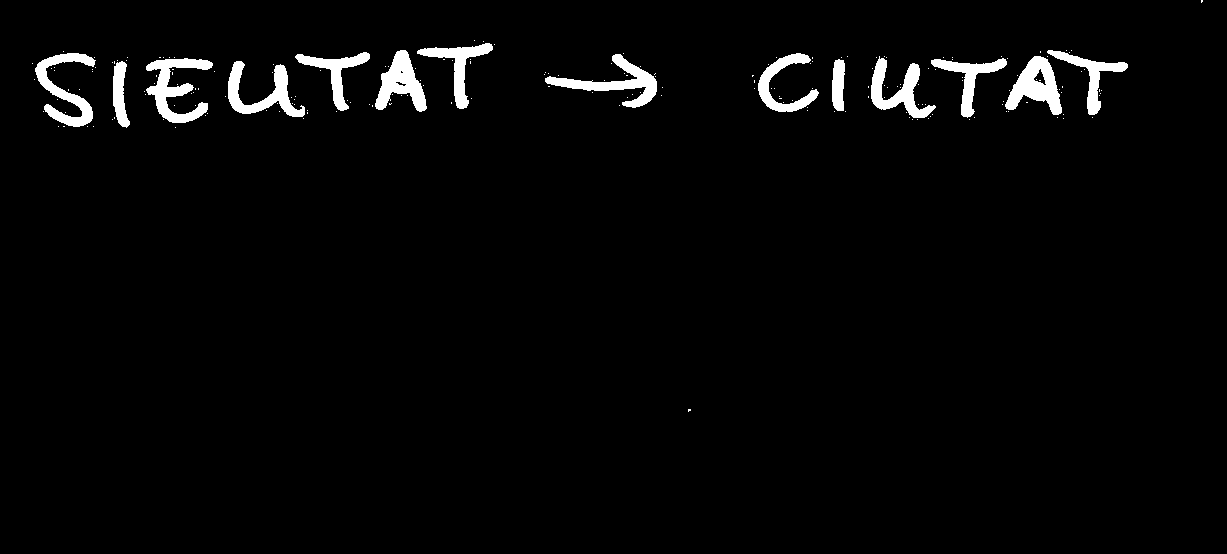 SIEUTAT → CIUTAT